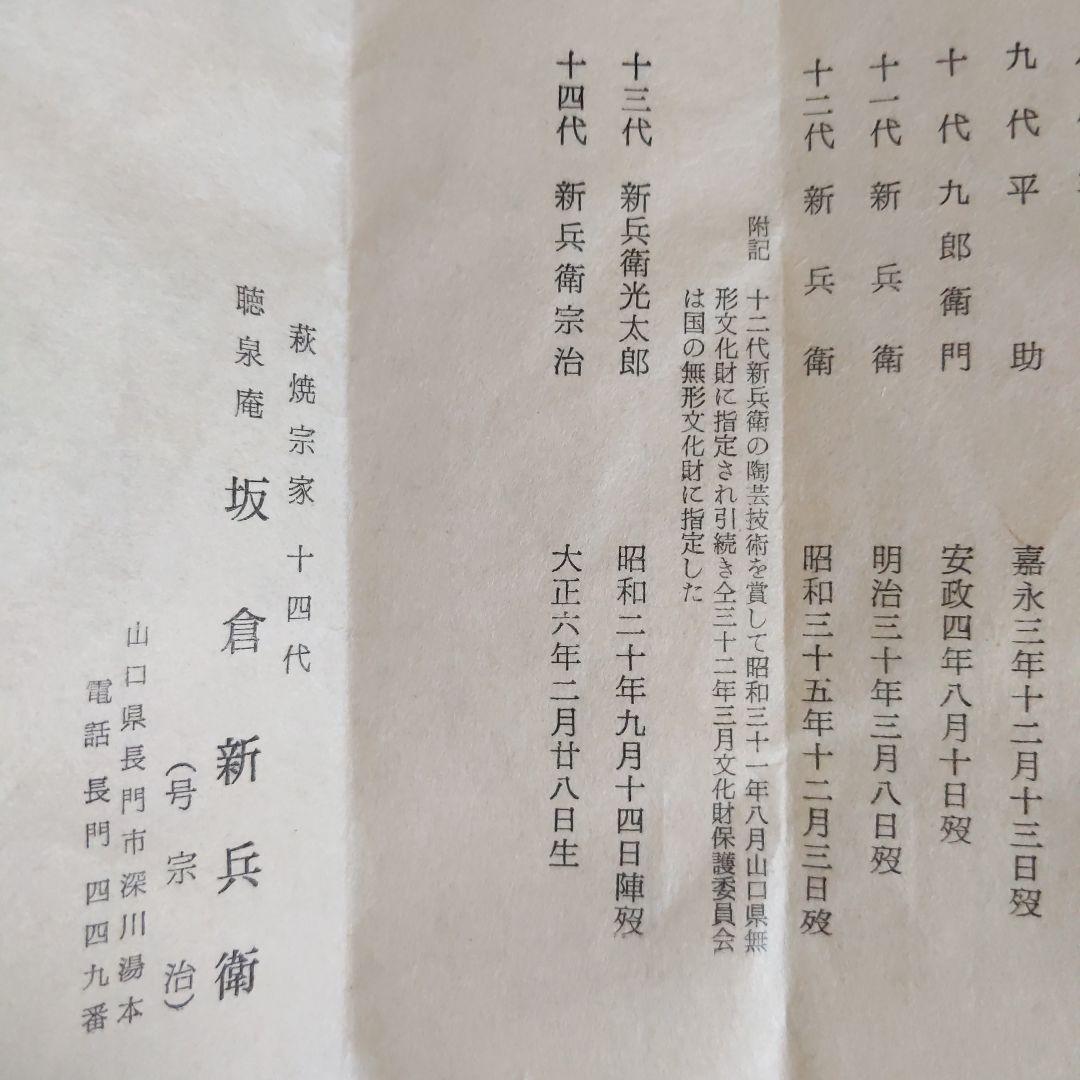 九代 平助 嘉永三年十二月十三日歿
十代 九郎衛門 安政四年八月十日歿
十一代 新兵衛 明治三十年三月八日歿
十二代 新兵衛 昭和三十五年十二月三日歿
附記 十二代新兵衛の陶芸技術を賞して昭和三十一年八月山口県無
形文化財に指定され引続き仝三十二年三月文化財保護委員会
は国の無形文化財に指定した
十三代 新兵衛光太郎 昭和二十年九月十四日陣歿
十四代 新兵衛宗治 大正六年二月廿八日生
萩焼宗家 十四代
聴泉庵 坂倉新兵衛
(号 宗治)
山口県長門市深川湯本
電話 長門 四四九番